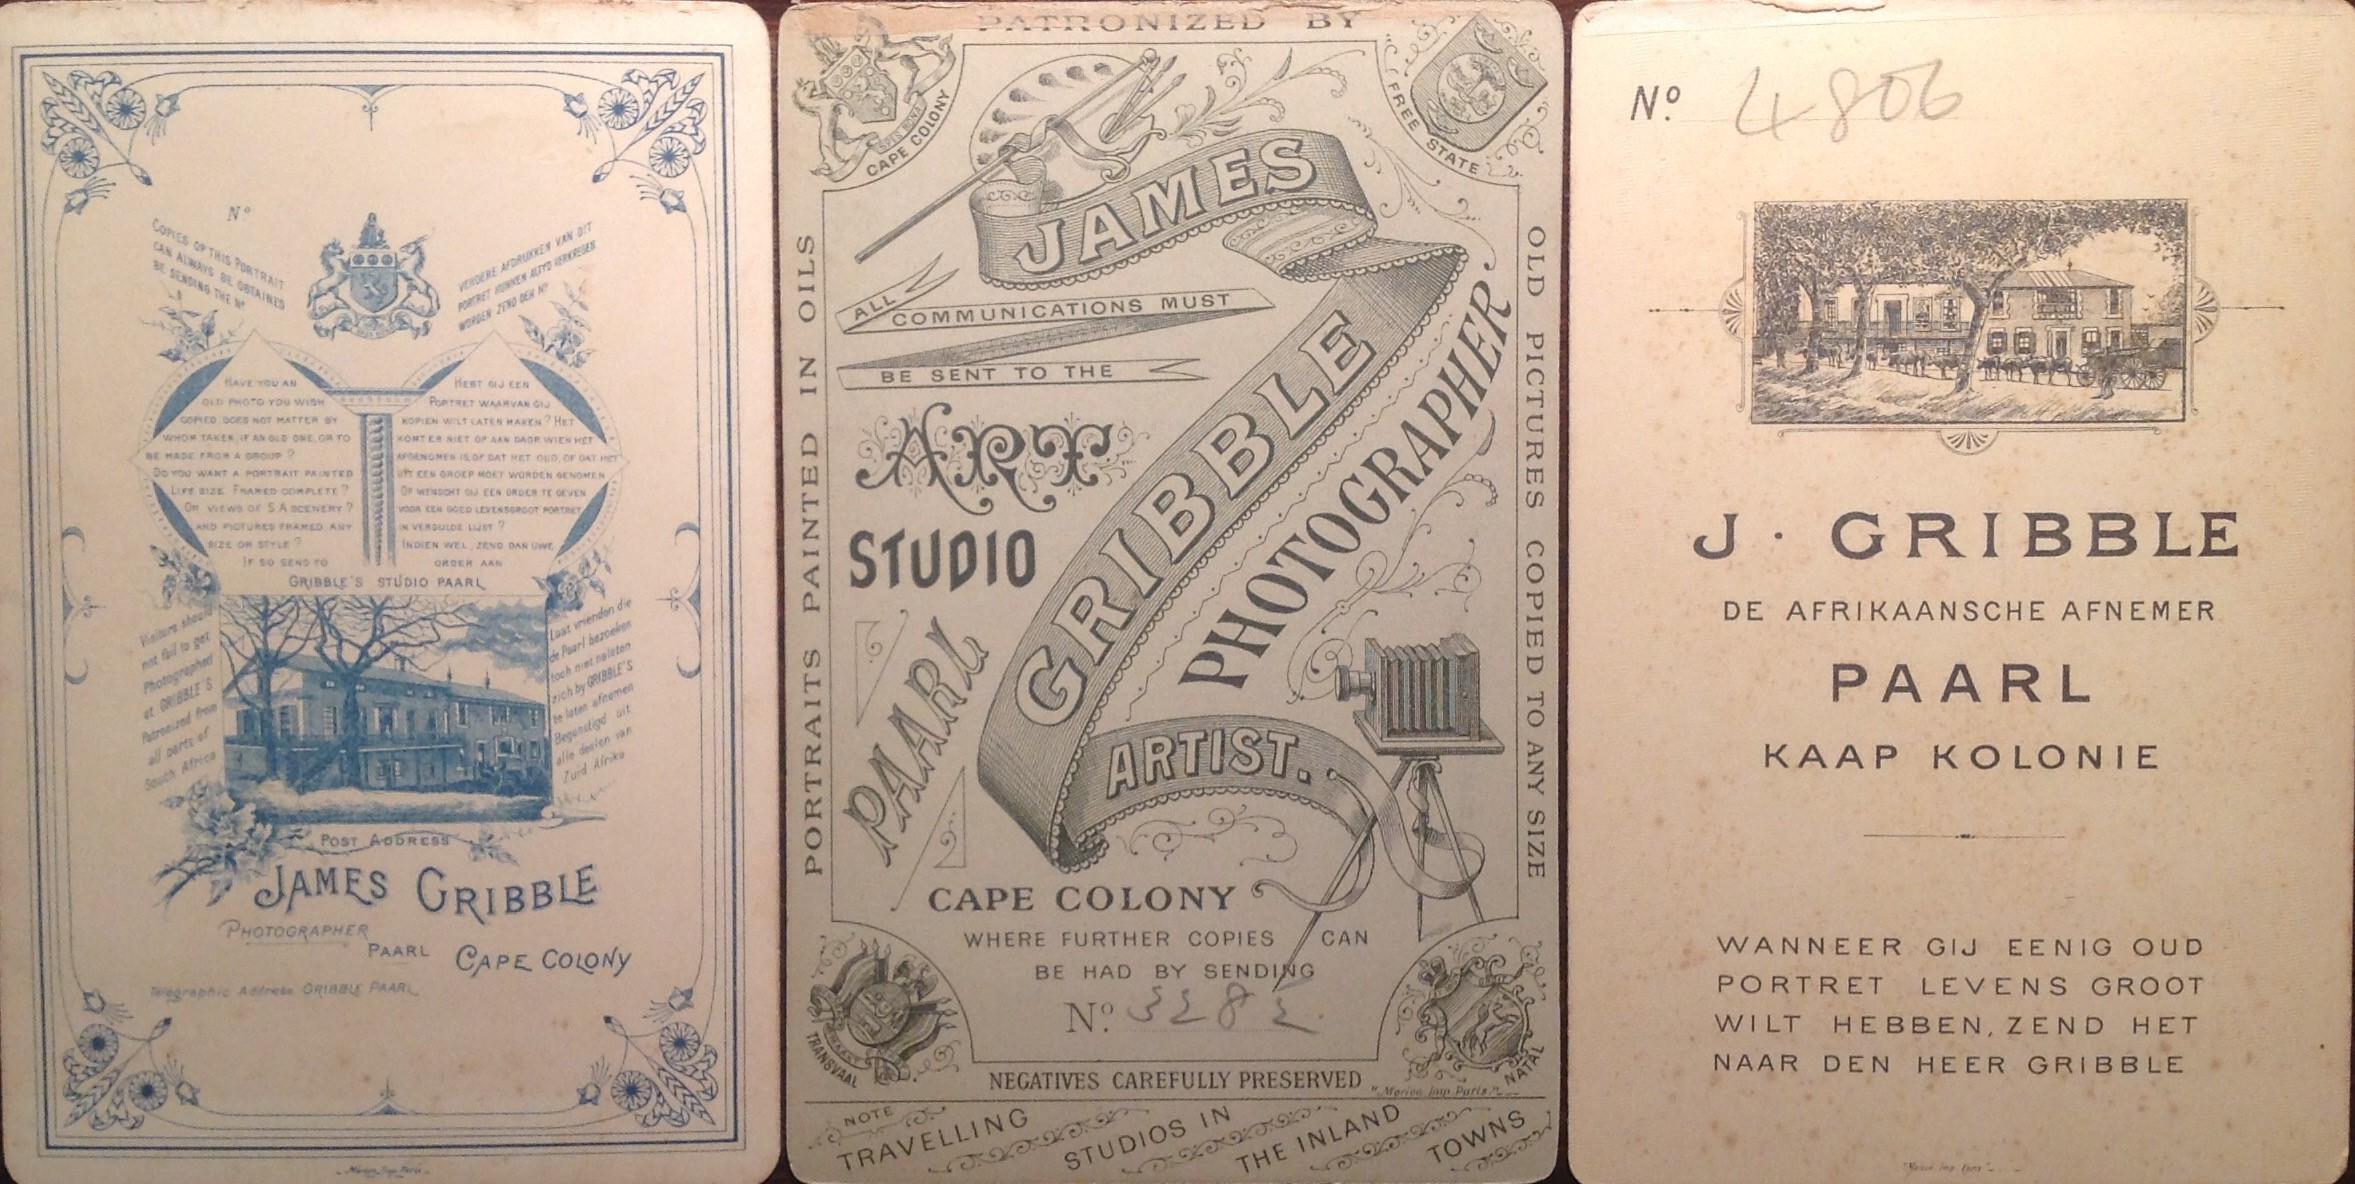 Nº
COPIES OF THIS PORTRAIT
CAN ALWAYS BE OBTAINED
BE SENDING THE Nº
VERDERE AFDRUKKEN VAN DIT
PORTRET KUNNEN ALTYD VERKREGEN
WORDEN ZEND DEN Nº
HAVE YOU AN
OLD PHOTO YOU WISH
COPIED DOES NOT MATTER BY
WHOM TAKEN, IF AN OLD ONE, OR TO
BE MADE FROM A GROUP?
DO YOU WANT A PORTRAIT PAINTED
LIFE SIZE FRAMED COMPLETE?
OR VIEWS OF S.A SCENERY?
AND PICTURES FRAMED ANY
SIZE OR STYLE?
IF SO SEND TO
HEBT GIJ EEN
PORTRET WAARVAN GIJ
KOPIEN WILT LATEN MAKEN? HET
KOMT ER NIET OP AAN DAOR WIEN HET
AFGENOMEN IS, OF DAT HET OUD, OF DAT HET
UIT EEN GROEP MOET WORDEN GENOMEN
OF WENSCHT GIJ EEN ORDER TE GEVEN
VOOR EEN GOED LEVENSGROOT PORTRET
IN VERGULDE LIJST?
INDIEN WEL, ZEND DAN UWE
ORDER AAN
GRIBBLE'S STUDIO PAARL
Visitors should
not fail to get
Photographed
at GRIBBLE'S
Patronized from
all parts of
South Africa
Laat vrienden die
de Paarl bezoeken
toch niet nalaten
zich by GRIBBLE'S
te laten afnemen
Begunstigd uit
alle deelen van
Zuid Afrika
POST ADDRESS
JAMES GRIBBLE
PHOTOGRAPHER
PAARL CAPE COLONY
Telegraphic Address GRIBBLE PAARL
Marion Imp. Paris
PATRONIZED BY
SPES BONA
CAPE COLONY
FREE STATE
PORTRAITS PAINTED IN OILS
OLD PICTURES COPIED TO ANY SIZE
JAMES
GRIBBLE
PHOTOGRAPHER
ARTIST.
ALL
COMMUNICATIONS MUST
BE SENT TO THE
ART
STUDIO
PAARL
CAPE COLONY
WHERE FURTHER COPIES CAN
BE HAD BY SENDING
Nº. 3282.
TRANSVAAL
NATAL
NEGATIVES CAREFULLY PRESERVED
"Marion Imp. Paris."
NOTE
TRAVELLING STUDIOS IN THE INLAND TOWNS
Nº. 4806
J. GRIBBLE
DE AFRIKAANSCHE AFNEMER
PAARL
KAAP KOLONIE
WANNEER GIJ EENIG OUD
PORTRET LEVENS GROOT
WILT HEBBEN, ZEND HET
NAAR DEN HEER GRIBBLE